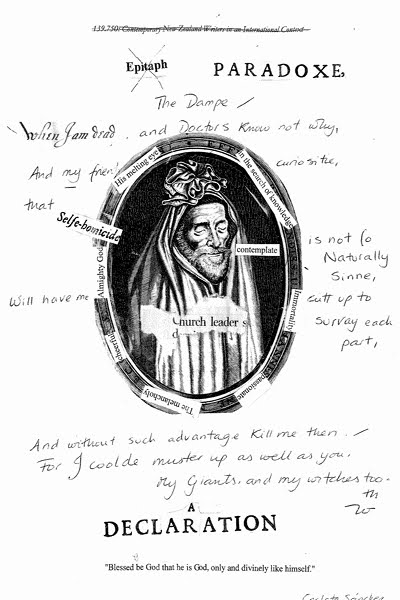 139.750: Contemporary New Zealand Writers in an International Context
Epitaph
PARADOXE,
The Dampe /
When I am dead, and Doctors know not why,
And my frien curiositie,
that
His melting eye
in the search of knowledge
Selfe-homicide
is not so
Naturally
Sinne,
contemplate
Almighty God
Will have me cutt up to
survay each
part,
Immortality
Church leader s
d
cheerful
Passionate
The melancholy
And without such advantage kill me then. /
For I coolde muster up as well as you.
My Giants, and my witches too.
th
A
DECLARATION
"Blessed be God that he is God, only and divinely like himself."